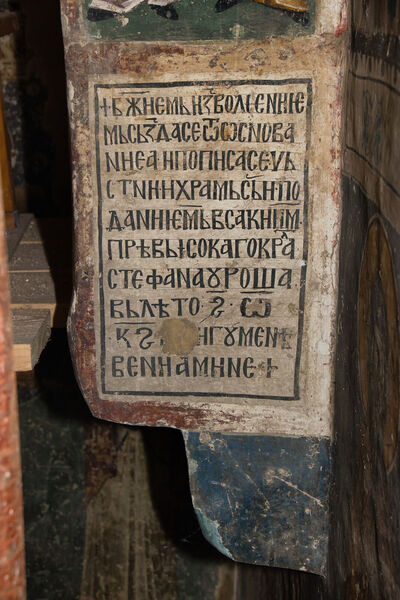 + Б҃ЖИЕМЬ ИЗВОЛѤНИѤ
МЬ СЬЗДАСЕ ѾѠСНОВА
НИЕА И ПОПИСАСЕ УЬ
СТНИИ ХРАМЬ СЬИ ПО
ДАНИѤМЬ ВСАКИИМ
ПРѢВЫСОКАГО КРАЛ
СТЕФАНА УРОША
В ЛѢТО · Ѕ · Ѡ
· КЅ · ИГУМЕНѢ
ВЕНИАМИНЕ +